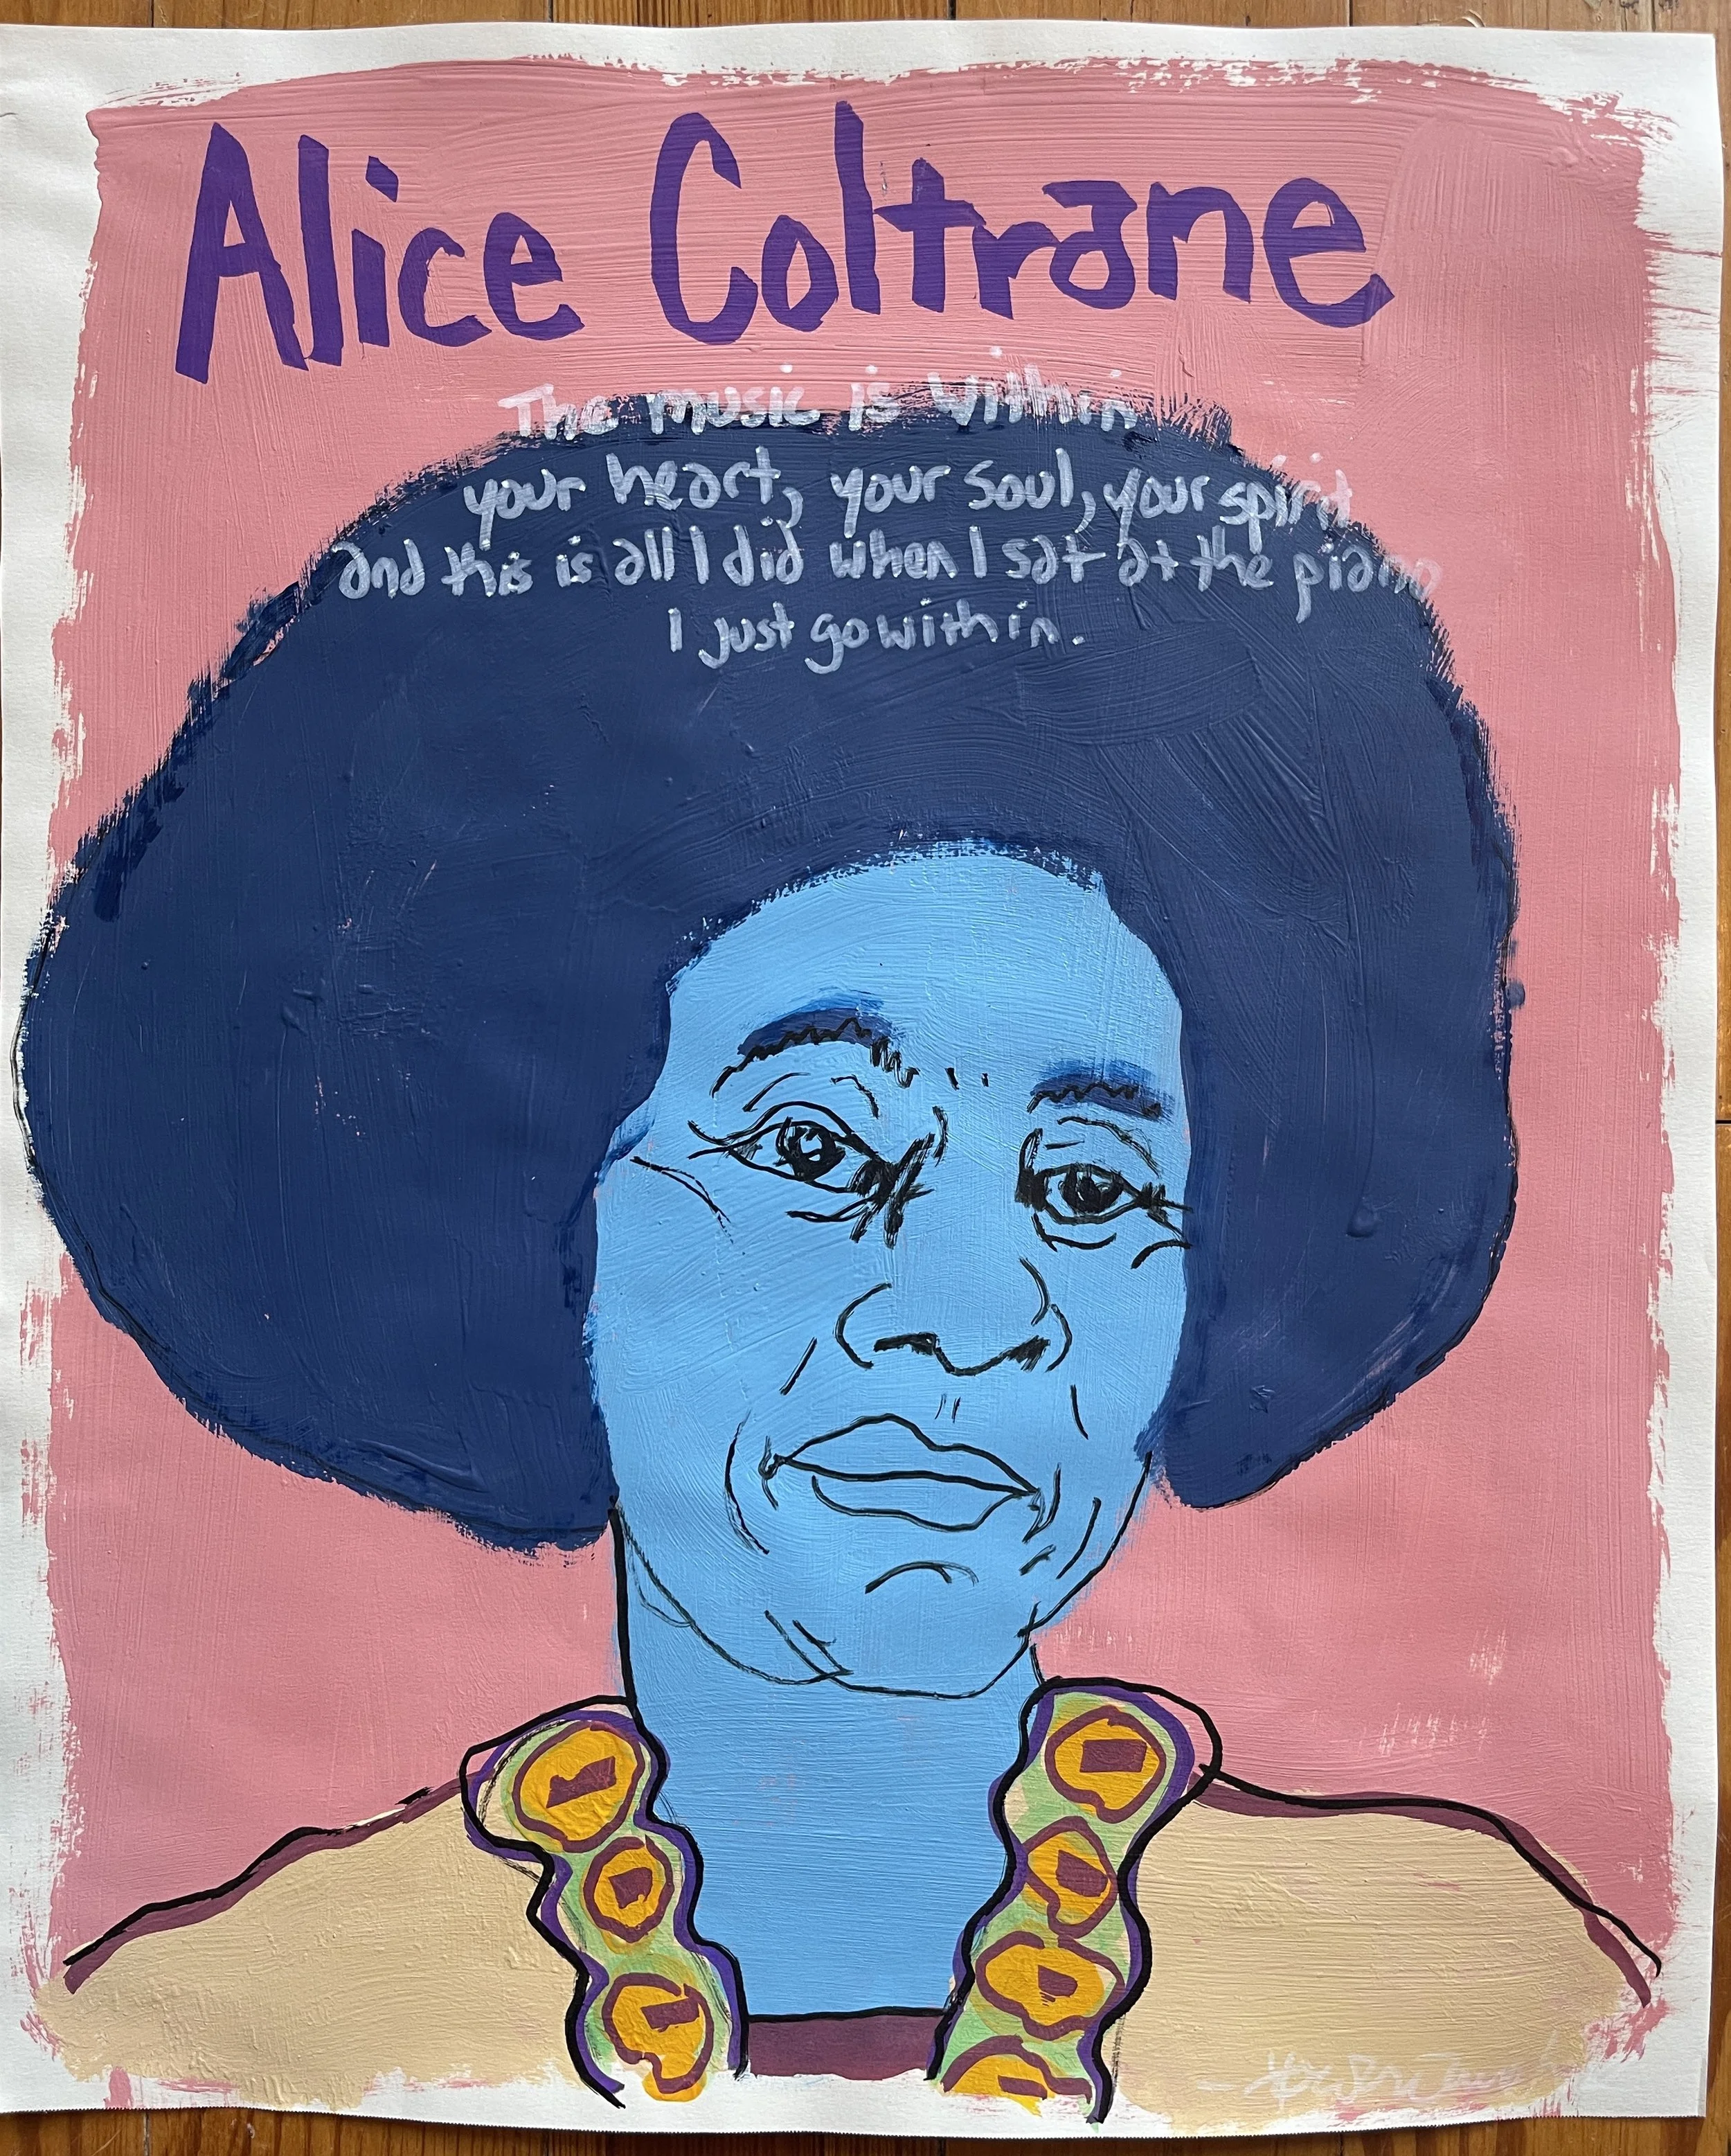 Alice Coltrane
The music is within
your heart, your soul, your spirit
and this is all I did when I sat at the piano
I just go within.